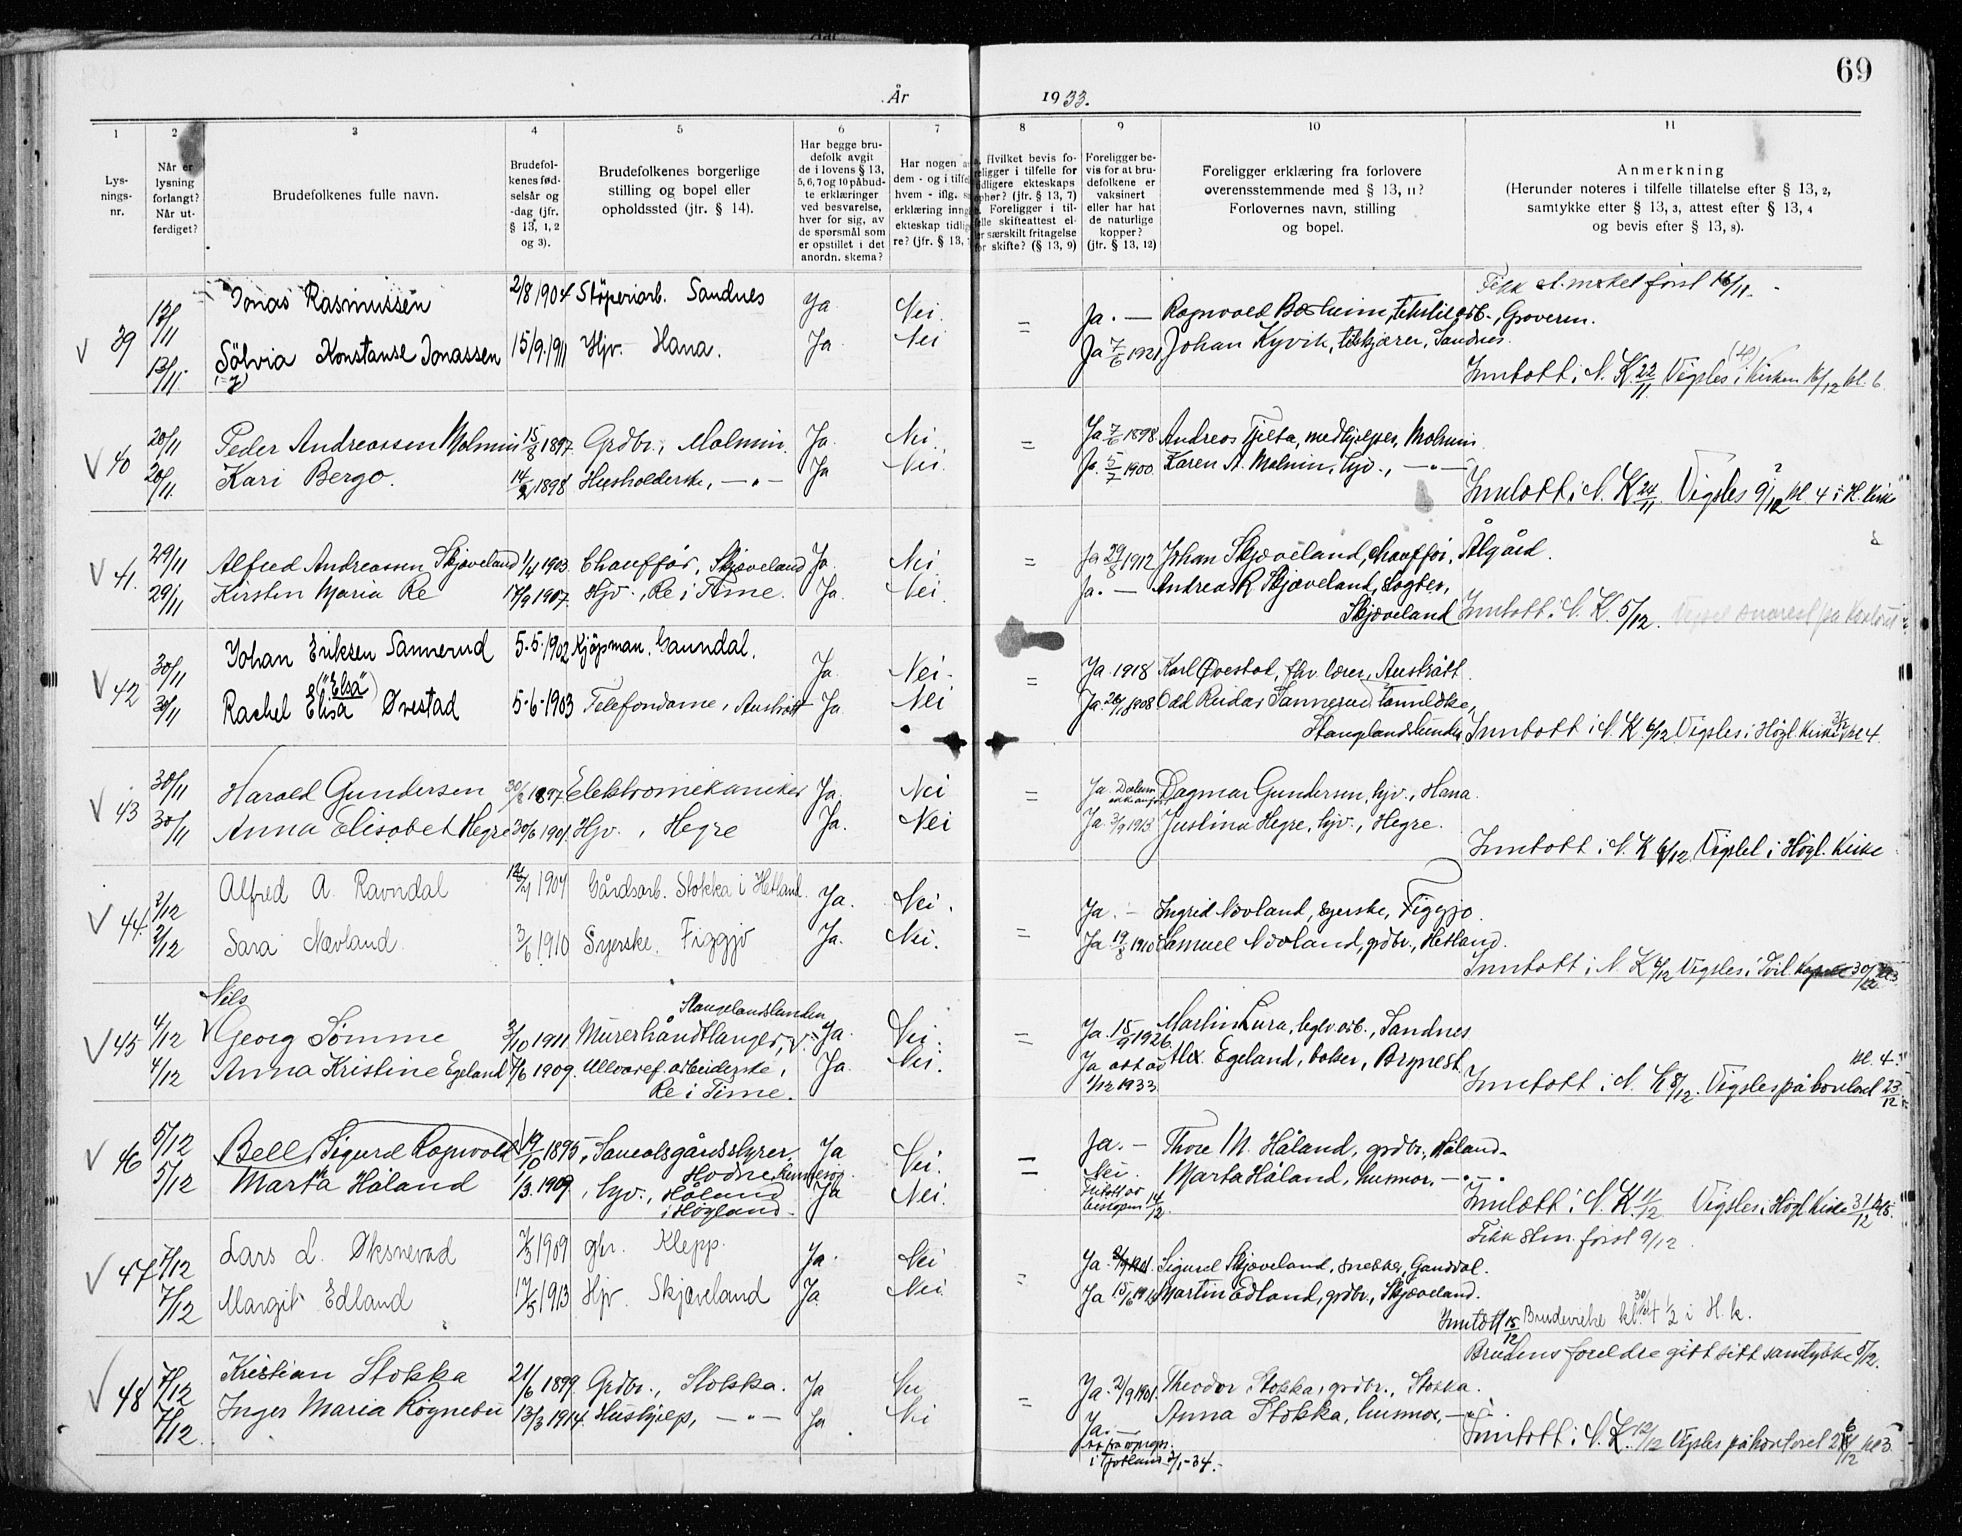 69
År 1933.
1 2 3 4 5 6 7 8 9 10 11
Lys-
nings-
nr.
Når er
lysning
forlangt?
Når ut-
ferdiget?
Brudefolkenes fulle navn.
Brudefol-
kenes fød-
selsår og
-dag (jfr.
§ 13, 1, 2
og 3).
Brudefolkenes borgerlige
stilling og bopel eller
opholdssted (jfr. § 14).
Har begge bru-
defolk avgit
de i lovens § 13,
5, 6, 7 og 10 påbud-
te erklæringer
ved besvarelse,
hver for sig, av
de spørsmål som
er opstillet i det
anordn. skema?
Har nogen a
dem - og i tilfe
hvem - iflg.
erklæring inng
ekteskap tidlig
re? (jfr. § 13,
Hvilket bevis fo-
religger i tilfelle for
idligere ekteskaps
ophør? (jfr. § 13, 7)
Foreligger i til-
felle skifteattest el-
ler særskilt fritagelse
for skifte? (§ 13, 9)
Foreligger be-
vis for at bru-
defolkene er
vaksinert
eller har hat
de naturlige
kopper?
(jfr. § 13, 12)
Foreligger erklæring fra forlovere
overensstemmende med § 13, 11?
Forlovernes navn, stilling
og bopel.
Anmerkning
(Herunder noteres i tilfelle tillatelse efter § 13, 2,
samtykke efter § 13, 3, attest efter § 13, 4
og bevis efter § 13, 8).
39 13/11 Jonas Rasmussen 2/8 1904 Støperiarb. Sandnes Ja Nei. = Ja. — Ragnvald Boxheim, tekstilarb., Groveren.
13/11. Sölvia Konstanse Jonassen 15/9.1911 Hjv. Hana. Ja. Nei Ja 7/6 1921 Johan Kyvik, Sandnes.
Inntatt i N. K 22/11 Vigsles i kirken 16/12 kl. 6
40 20/11 Peder Andreassen Malmin 15/8 1897. Grdbr., Malmin. Ja. Nei. = Ja 7/6 1898 Andreas Tjelta, medhjelper, Malmin.
20/11. Kari Bergo. 14/2 1898. Husholderske, —„— Ja Nei. Ja. 5/7 1900 Karen A. Malmin, hjv., —„—
Inntatt i N. K 24/11. Vigsles 9/12 kl. 4 i H. kirke
41. 29/11 Alfred Andreassen Skjæveland 1/4 1903. Chauffør, Skjæveland Ja. Nei = Ja 29/8 1912 Johan Skjæveland, chauffør, Ålgård.
29/11 Kirsten Maria Re 17/9 1907. Hjv., Re i Time. Ja. Nei. Ja. — Andreas R Skjæveland,
Skjæveland Inntatt i N. K. 5/12.
42 30/11 Johan Eriksen Sannerud 5.5.1902 Kjøpman. Ganndal. Ja. Nei. = Ja 1918 Karl Øvestad, fhv. lærer, Austrått.
("Elsa")
30/11 Rachel Elisa Øvestad 5-6-1903 Telefondame, Austrått Ja. Nei Ja. Odd Reidar Sannerud,
Stangelandslunden Inntatt i N. K. 6/12. Vigsles i Høgl. Kirke kl 4.
43 30/11 Harald Gundersen 30/8 1897. Elektromekaniker Ja. Nei = Ja. Dagmar Gundersen, hjv., Hana.
30/11 Anna Elisabet Hegre 30/6 1901. Hjv., Hegre Ja. Nei Ja 3/9 1913 Justina Hegre, hjv., Hegre.
Inntatt i N. K 6/12 Vigslet i Høgl. kirke
44 2/12 Alfred A. Ravndal 1904 Gårdsarb. Stokka i Hetland. Ja. Nei. = Ja. — Ingrid Nævland, syerske, Figgjo.
2/12 Sara Nævland. 3/6 1910 Syerske. Figgjo Ja. Nei. Ja. 19/8 1910 Samuel Nævland, grdbr., Hetland.
Inntatt i N. K 6/12 Vigsles i 30/12 kl 3
Nils
45 4/12 Georg Sømme 3/10 1911. Murerhåndlanger, Stangelandslunden Ja. Nei. = Ja. 15/9 1926 Martin Lura, Sandnes
4/12 Anna Kristine Egeland 7/6 1909. Ullvaref. arbeiderske, Ja. Nei. Ja Alex Egeland, baker, Bryne st.
Re i Time. 1/12 1933 kl. 4.
Inntatt i N. K 8/12. Vigsles på kontoret 23/12
46 5/12 Bell, Sigurd Ragnvald 19/10 1895, Ja Nei. = Ja. — Thore M. Håland, grdbr., Håland.
Hodne,
5/12 Marta Håland 1/3. 1909, hjv., Håland i Høgland. Ja Nei. Nei. Marta Håland, husmor, —„—
14/12. Inntatt i N. K. 11/12. Vigsles i Høgl Kirke 31/12
Fikk først 9/12.
47 7/12 Lars L. Øksnevad 7/3 1909 gbr. Klepp. Ja. Nei = Ja. Sigurd Skjæveland, snekker, Ganddal.
7/12 Margit Edland 17/5 1913 Hjv. Skjæveland Ja Nei. Ja Martin Edland, grdbr., Skjæveland.
Inntatt 15/12 Brudevielse 30/12 kl. 4 1/2 i H. k.
Brudens foreldre gitt sitt samtykke 5/12.
48 7/12 Kristian Stokka 21/6 1899. Grdbr., Stokka. Ja Nei = Ja. 2/9 1901. Theodor Stokka, grdbr., Stokka.
7/12. Inger Maria Rögnebu 13/3 1914. Hushjelp, —„— Ja Nei Ja. — Anna Stokka, husmor, —„—.
Inntatt i N. K. 12/12 Vigsles på kontoret kl 3.